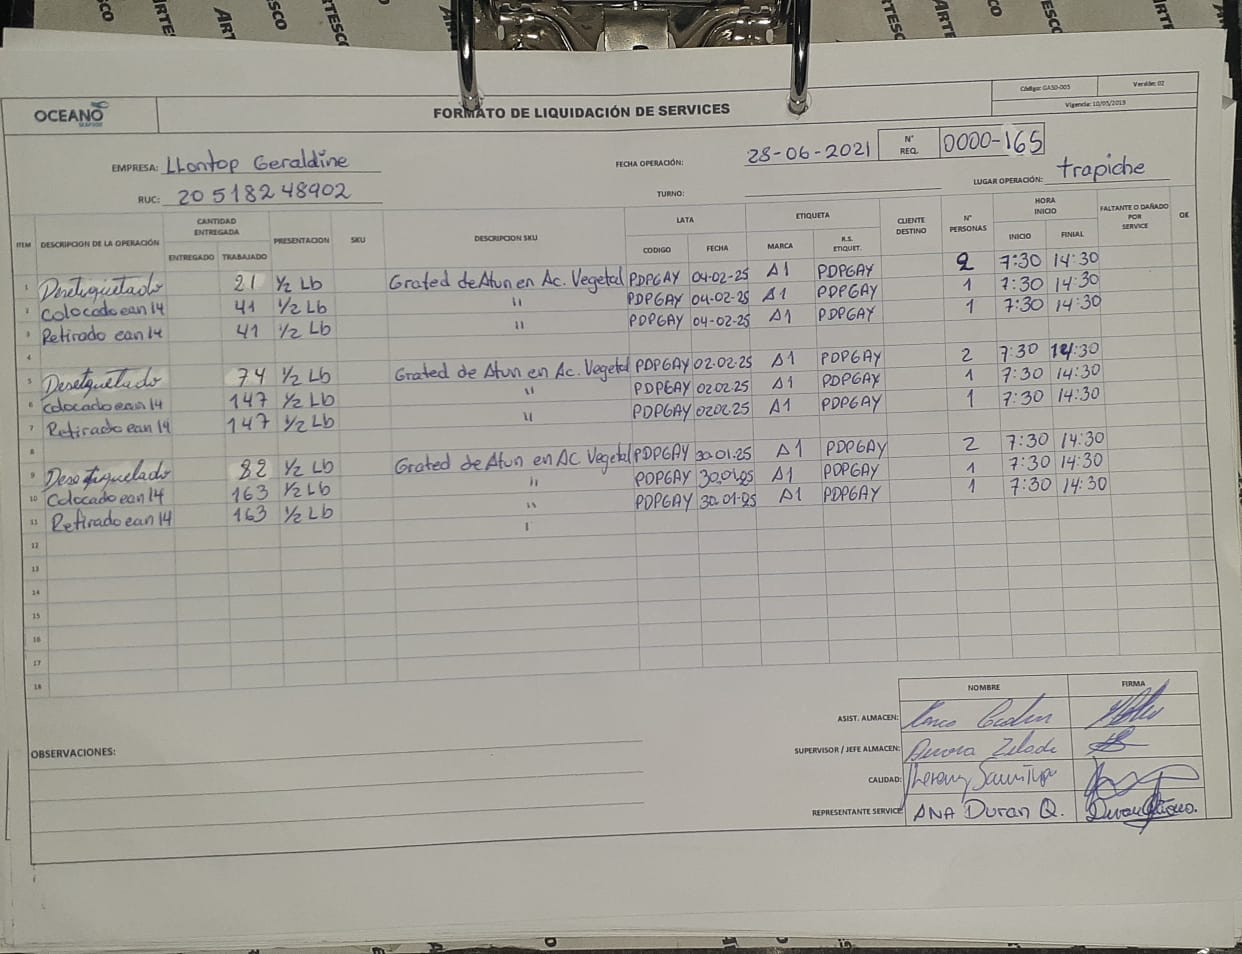 ARTESCO
OCEANO
SEAFOOD
FORMATO DE LIQUIDACIÓN DE SERVICES
Código: GASO-005
Versión: 02
Vigencia: 10/05/2019
EMPRESA: LLontop Geraldine
FECHA OPERACIÓN: 28-06-2021
N° REQ. 0000-165
RUC: 20518248902
TURNO:
LUGAR OPERACIÓN: trapiche
ITEM DESCRIPCION DE LA OPERACIÓN CANTIDAD ENTREGADA PRESENTACION SKU DESCRIPCION SKU LATA ETIQUETA CLIENTE DESTINO N° PERSONAS HORA INICIO FALTANTE O DAÑADO POR SERVICE OK
ENTREGADO TRABAJADO CODIGO FECHA MARCA R.S. ETIQUET. INICIO FINIAL
1 Desetiquetado 21 1/2 Lb Grated de Atun en Ac. Vegetal PDPGAY 04-02-25 A1 PDPGAY 2 7:30 14:30
2 Colocado ean 14 41 1/2 Lb " PDPGAY 04-02-25 A1 PDPGAY 1 7:30 14:30
3 Retirado ean 14 41 1/2 Lb " PDPGAY 04-02-25 A1 PDPGAY 1 7:30 14:30
4
5 Desetiquetado 74 1/2 Lb Grated de Atun en Ac. Vegetal PDPGAY 02.02.25 A1 PDPGAY 2 7:30 14:30
6 Colocado ean 14 147 1/2 Lb " PDPGAY 02.02.25 A1 PDPGAY 1 7:30 14:30
7 Retirado ean 14 147 1/2 Lb " PDPGAY 02.02.25 A1 PDPGAY 1 7:30 14:30
8
9 Desetiquetado 82 1/2 Lb Grated de Atun en AC Vegetal PDPGAY 30.01.25 A1 PDPGAY 2 7:30 14:30
10 Colocado ean 14 163 1/2 Lb " PDPGAY 30.01.25 A1 PDPGAY 1 7:30 14:30
11 Retirado ean 14 163 1/2 Lb " PDPGAY 30.01.25 A1 PDPGAY 1 7:30 14:30
12
13
14
15
16
17
18
NOMBRE FIRMA
ASIST. ALMACEN:
OBSERVACIONES:
SUPERVISOR / JEFE ALMACEN:
CALIDAD:
REPRESENTANTE SERVICE ANA Duran Q.